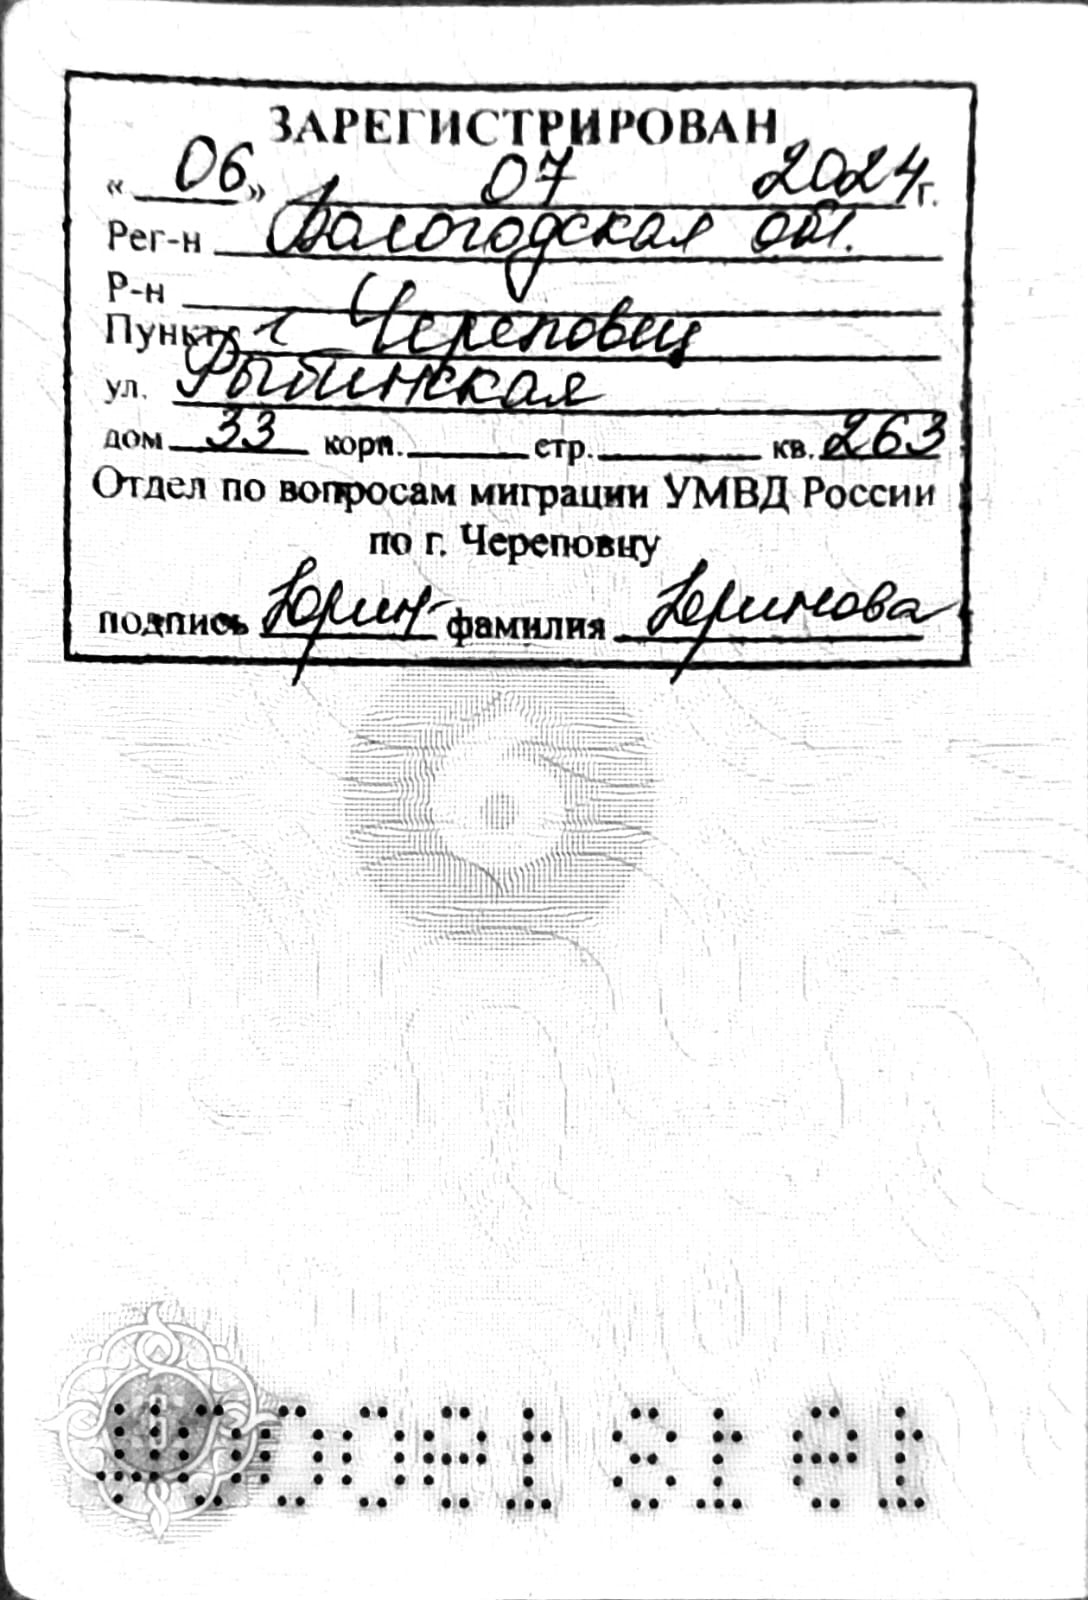 ЗАРЕГИСТРИРОВАН
« 06 » 07 2024 г.
Рег-н Вологодская обл.
Р-н
Пункт г Череповец
ул. Рыбинская
дом 33 корп. стр. кв. 263
Отдел по вопросам миграции УМВД России
по г. Череповцу
подпись фамилия Юринова